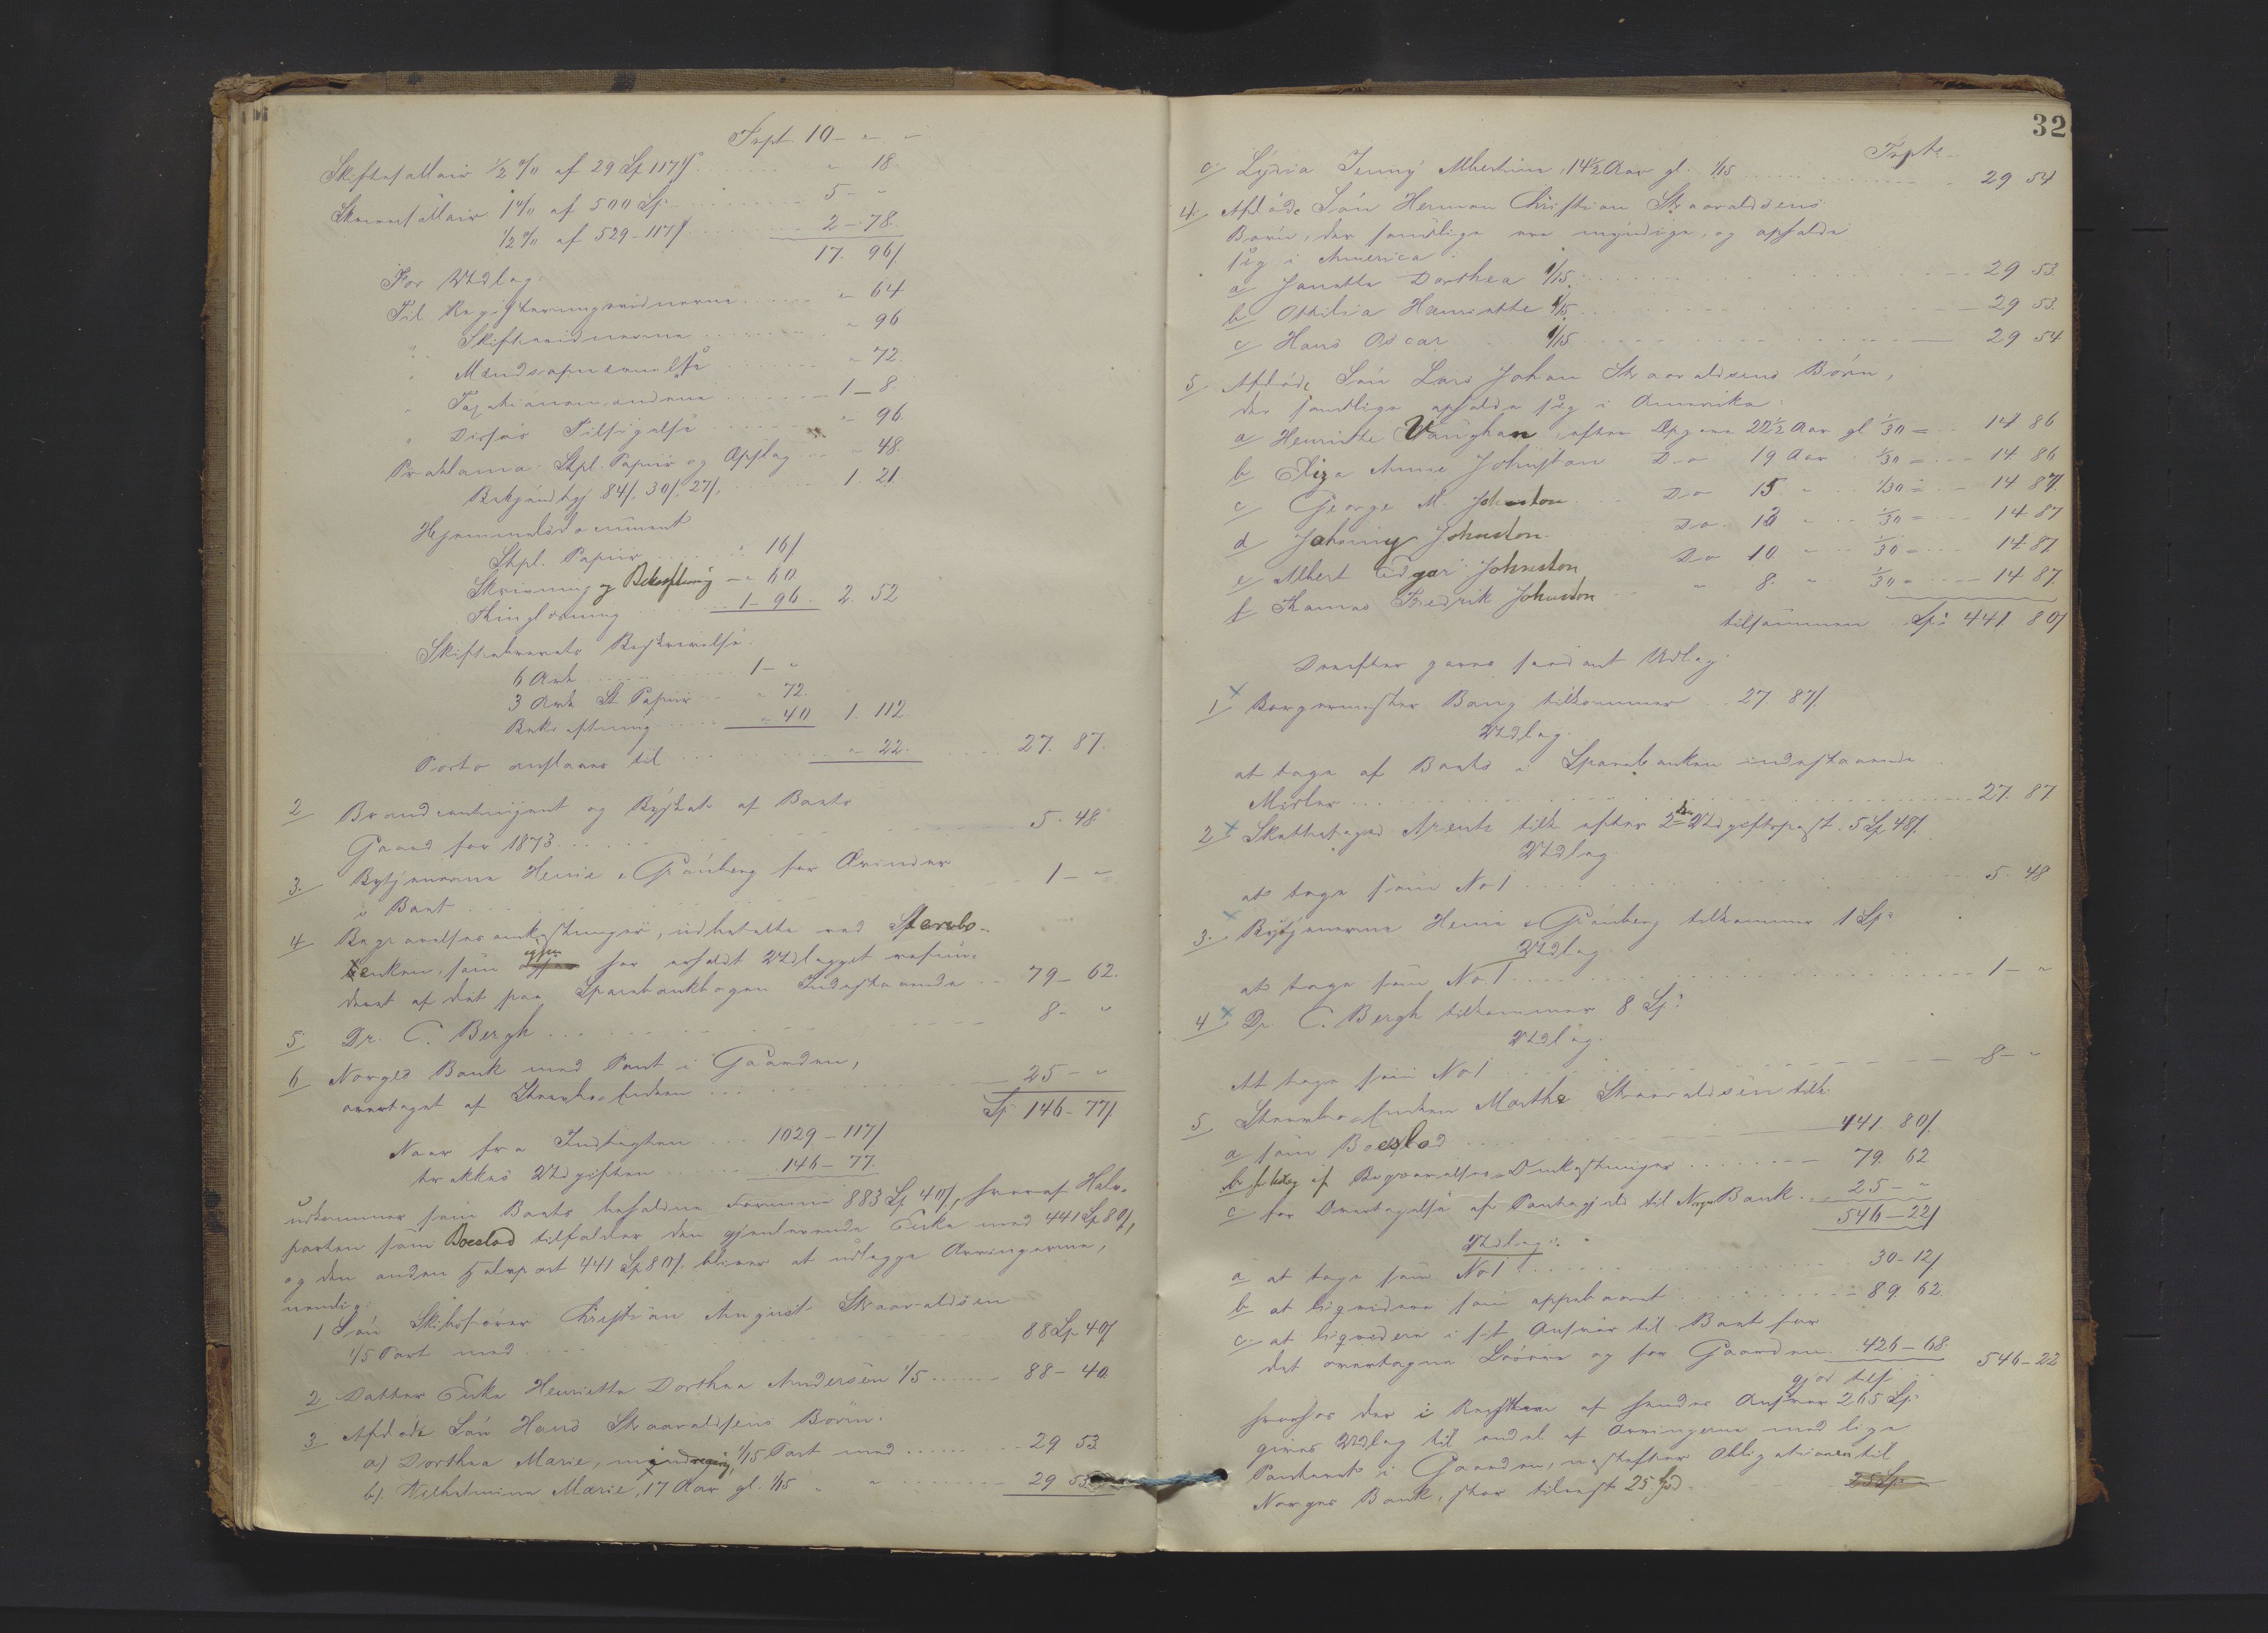 Trpt. 10 - " - "
Skiftesallair 1/2 % af 29 Sp 117 ß ....... " 18.
Skriversallair 1 % af 500 Sp. .......... 5 - "
1/2 % af 529 - 117 ß .......... 2 - 78.
17. 96 ß
For Udlæg.
Til Registreringsvidnerne ...... " 64
" Skiftevidnerne ......... " 96
" Mændsopnævnelse ......... " 72.
" Taxationsmændene ....... 1 - 8.
" Disses Tilsigelse ....... " 96.
Proklama: Stpl. Papiir og Opslag ... " 48.
Bekjendtgj 84 ß, 30 ß, 27 ß, ....... 1. 21.
Hjemmelsdocument
Stpl. Papiir ....... " 16 ß
Skrivning og Bekræftning - " 60
Thinglæsning ....... 1 - 96. 2. 52
Skiftebrevets Beskrivelse.
6 Ark ............ 1 - "
3 Ark St. Papiir " 72.
Bekræftning ...... " 40 1. 112
Porto anslaaes til ............ " 22. .... 27. 87.
2 Brandcontingent og Byskat af Boets
Gaard for 1873 ............ 5. 48.
3. Bytjenerne Henie & Grønberg for Ærinder
i Boet ............ 1 - "
4 Begravelsesomkostninger, udbetalte ved Stervbo-
enken, som igjen har erholdt Udlægget refun-
deret af det paa Sparebankbogen Indestaaende .. 79 - 62.
5 Dr. C. Bergh ............ 8 - "
6 Norges Bank med Pant i Gaarden,
overtaget af Stervbo-Enken ............ 25 - "
Sp. 146 - 77 ß
Naar fra Indtægten ... 1029 - 117 ß
trækkes Udgiften ...... 146 - 77.
udkommer som Boets beholdne Formue 883 Sp 40 ß, hvoraf Halv-
parten som Boeslod tilfalder den gjenlevende Enke med 441 Sp 80 ß,
og den anden Halvpart 441 Sp 80 ß bliver at udlægge Arvingerne,
nemlig:
1 Søn Skibsfører Christian August Skaaraldsen
1/5 Part med ............ 88 Sp 40 ß
2 Datter Enke Henriette Dorthea Andersen 1/5 ....... 88 - 40.
3 Afdøde Søn Hans Skaaraldsens Børn.
a) Dorthea Marie, myndig, 1/15 Part med ....... 29 53
b) Wilhelmine Marie, 17 Aar gl. 1/15 " " ........ 29 53
32
Trpte.
c Lydia Jenny Albertine, 14 1/2 Aar gl. 1/15 ............ 29 54
4. Afdøde Søn Herman Christian Skaaraldsens
Børn, der samtlige ere myndige, og opholde
sig i America:
a Janette Dorthea 1/15 ............ 29 53.
b Othilia Henriette 1/15 ............ 29 53.
c Hans Oscar 1/15 ............ 29 54
5 Afdøde Søn Lars Johan Skaaraldsens Børn,
der samtlige opholde sig i Amerika:
a Henriette Vaughan, efter Opg. 22 1/2 Aar gl 1/30 = .. 14 86
b Eliza Anne Johnston Do 19 Aar 1/30 = .. 14 86
c George M. Johnston Do 15 " 1/30 = 14 87
d Johnny Johnston. Do. 13 " 1/30 = 14 87
e Albert Edgar Johnston Do 10 " 1/30 = 14 87
f Thomas Fredrik Johnston " 8. " 1/30 = 14 87.
tilsammen Sp: 441 80 ß
Derefter gjøres saadant Udlæg.
1 Borgermester Bang tilkommer . 27 87 ß.
Udlæg.
at tage af Boets i Sparebanken indestaaende
Midler ............ 27. 87
2 Skattefoged Arentz tilk. efter 2den Udgiftspost. 5 Sp 48 ß.
Udlæg
at tage som No 1 ............ 5. 48
3. Bytjenerne Henie & Grønberg tilkommer 1 Sp:
Udlæg
at tage som No 1 ............ 1 - "
4 Dr. C. Bergh tilkommer 8 Sp:
Udlæg.
At tage som No 1 ............ 8 - "
5 Stervbo-Enken Marthe Skaaraldsen tilk.
a som Boeslod ............ 441. 80 ß.
b for Udlæg af Begravelses-Omkostninger ........ 79. 62
c for Overtagelse af Pantegjeld til Norges Bank. 25 - "
546 - 22 ß
Udlæg:
a at tage som No 1 ............ 30 - 12 ß
b at liqvidere som oppebaaret ............ 89. 62.
c at liqvidere i sit Ansvar til Boet for
det overtagne Løsøre og for Gaarden .. 426 - 68. 546 - 22
hvorhos der i Resten af hendes Ansvar 265 Sp:
gives Udlæg til endel af Arvingerne med lige
Panteret i Gaarden, næstefter Obligationen til
Norges Bank, stor tilrest 25 Spd.